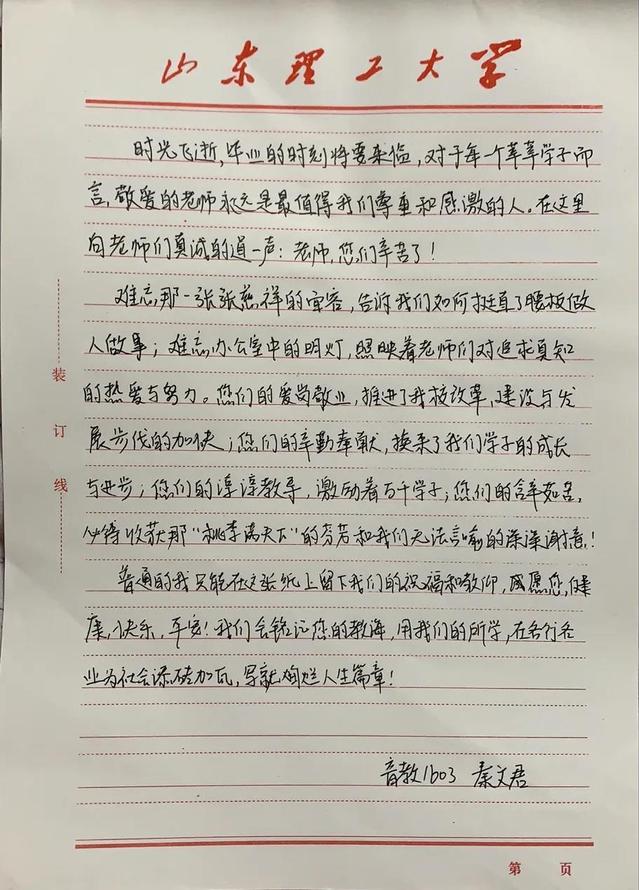 山东理工大学
时光飞逝,毕业的时刻将要来临,对于每一个莘莘学子而
言,敬爱的老师永远是最值得我们尊重和感激的人。在这里
向老师们真诚的道一声:老师,您们辛苦了!
难忘,那一张张慈祥的面容,告诉我们如何挺直了腰板做
人做事;难忘,办公室中的明灯,照映着老师们对追求真知
的热爱与努力。您们的爱岗敬业,推进了我校改革,建设与发
展步伐的加快;您们的辛勤奉献,换来了我们学子的成长
与进步;您们的淳淳教导,激励着万千学子;您们的含辛如苦,
必将收获那“桃李满天下”的芬芳和我们无法言喻的深深谢意!
普通的我只能在这张纸上留下我们的祝福和敬仰,愿您,健
康,快乐,平安!我们会铭记您的教诲,用我们的所学,在各行各
业为社会添砖加瓦,写就绚烂人生篇章!
音教1603 秦文君
装
订
线
第 页